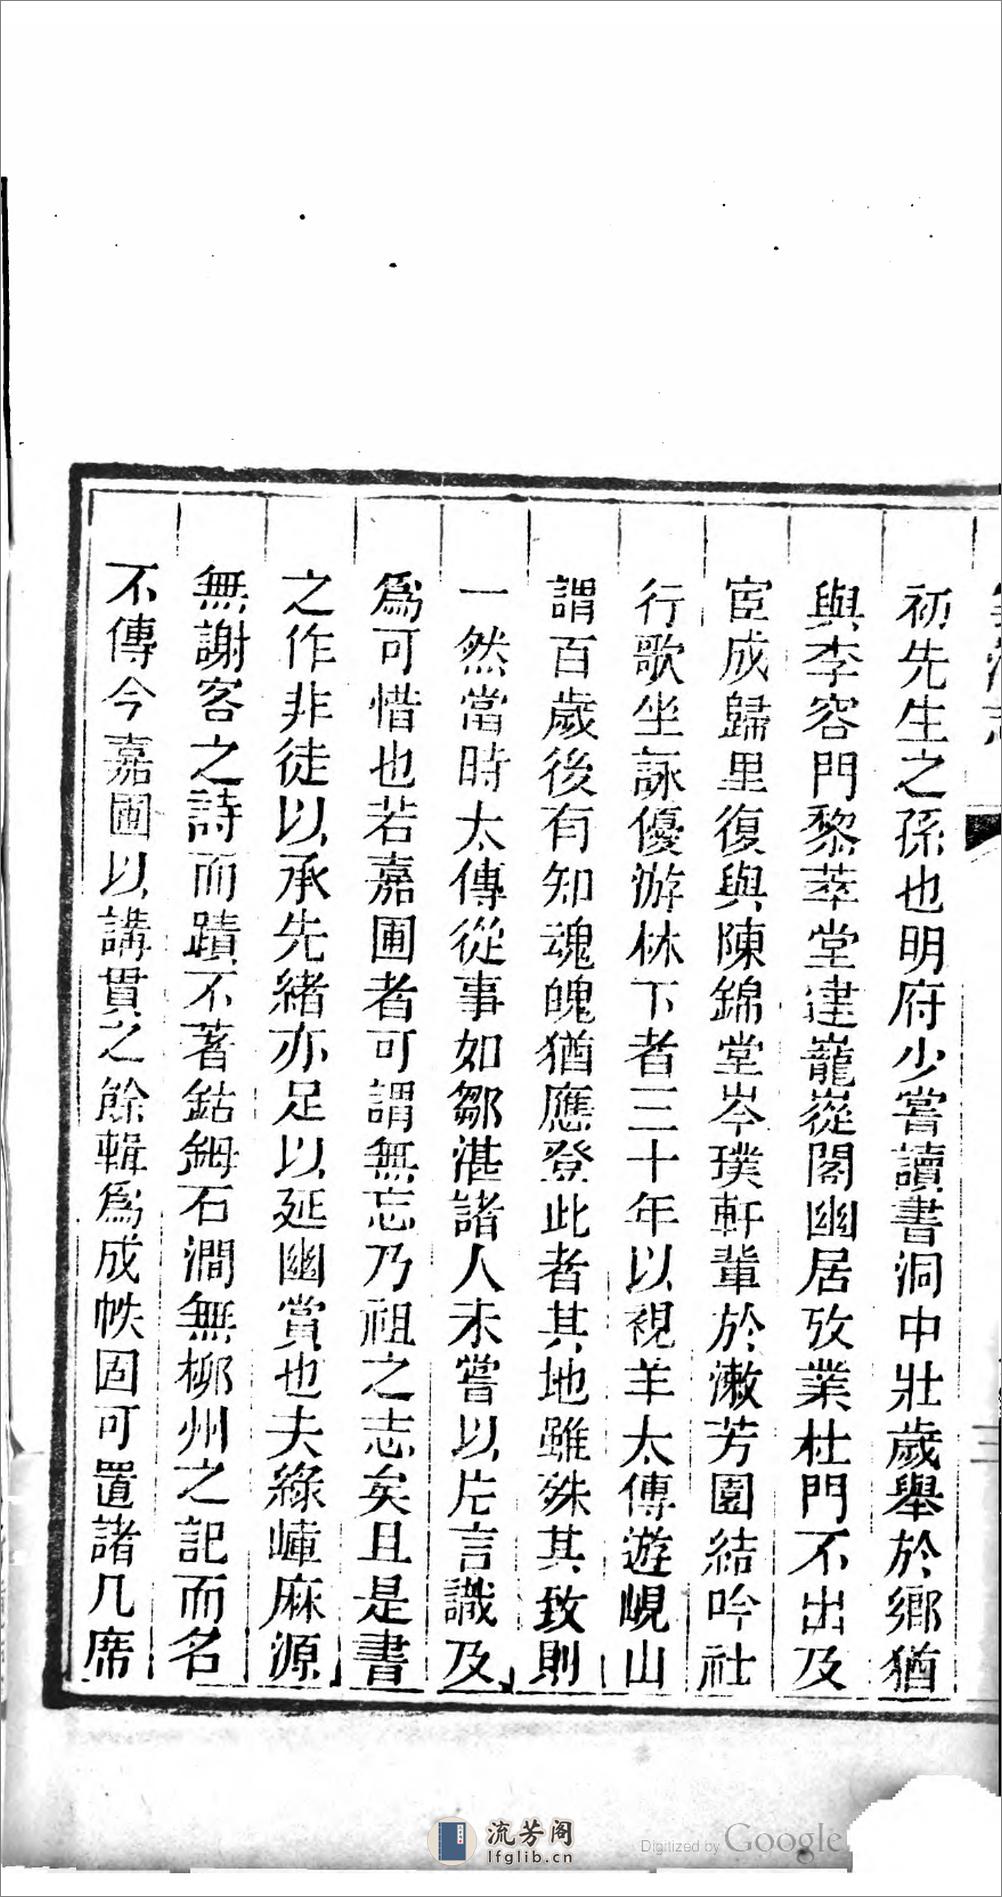 初先生之孫也明府少嘗讀書洞中壯歲舉於鄉猶
與李容門黎萃堂建巃嵸閣幽居攷業杜門不出及
宦成歸里復與陳錦堂岑璞軒輩於漱芳園結吟社
行歌坐詠優游林下者三十年以視羊太傅遊峴山
謂百歲後有知魂魄猶應登此者其地雖殊其致則
一然當時太傅從事如鄒湛諸人未嘗以片言識及
爲可惜也若嘉圃者可謂無忘乃祖之志矣且是書
之作非徒以承先緒亦足以延幽賞也夫綠嶂麻源
無謝客之詩而蹟不著鈷鉧石澗無柳州之記而名
不傳今嘉圃以講貫之餘輯爲成帙固可置諸几席
流芳阁
lfglib.cn
Digitized by Google